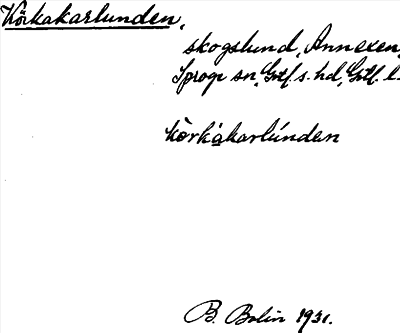 Körkakarlunden,
skogslund, Annexen,
Sproge sn, Gotl. s. hd, Gotl. l.
kö̀rkakarlúnden
B. Bolin 1931.